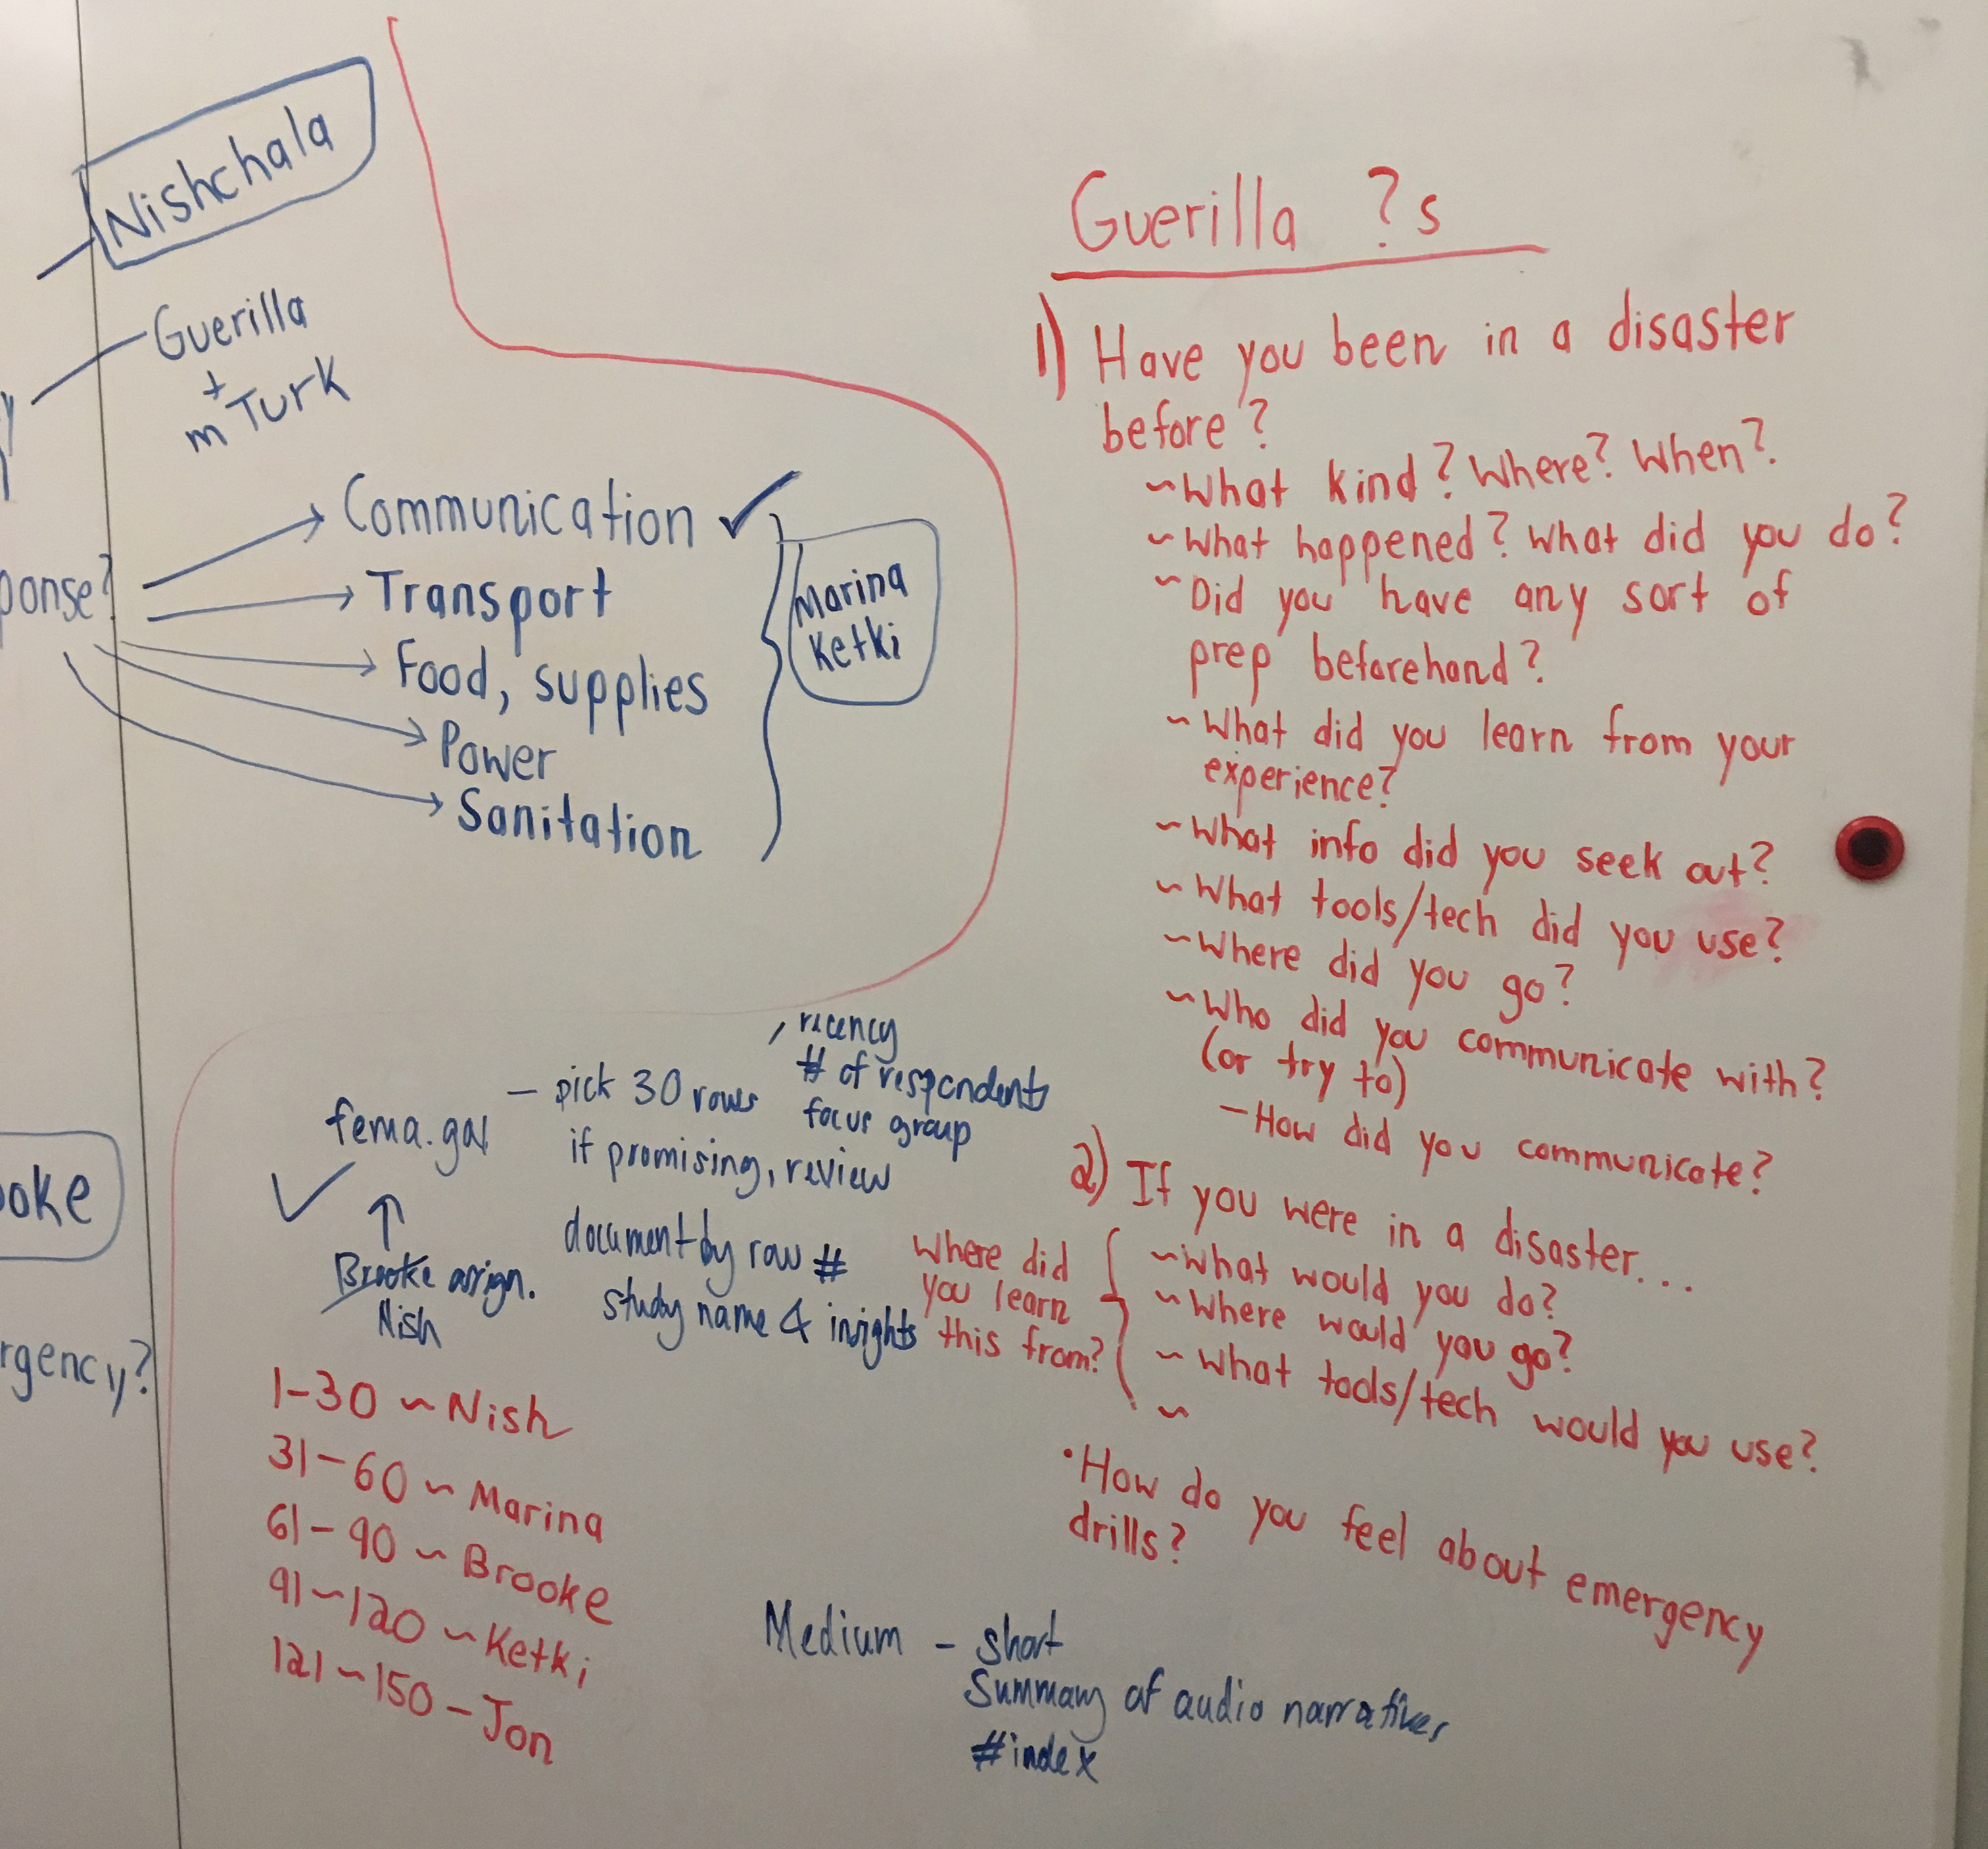 Nishchala
Guerilla
+
mTurk
ponse?
Communication ✓
Transport
Food, supplies
Power
Sanitation
Marina
Ketki
oke
rgency?
fema.gov
✓
↑
Brooke assign.
Nish
– pick 30 rows
if promising, review
recency
# of respondents
focus group
document by row #
study name & insights
1-30 ~ Nish
31-60 ~ Marina
61-90 ~ Brooke
91~120 ~ Ketki
121~150 - Jon
Medium – short
summary of audio narratives
#index
Guerilla ?s
1) Have you been in a disaster
before?
~What kind? Where? When?
~What happened? What did you do?
~Did you have any sort of
prep beforehand?
~What did you learn from your
experience?
~What info did you seek out?
~What tools/tech did you use?
~Where did you go?
~Who did you communicate with?
(or try to)
–How did you communicate?
2) If you were in a disaster...
~What would you do?
~Where would you go?
~What tools/tech would you use?
~
where did
you learn
this from?
•How do you feel about emergency
drills?